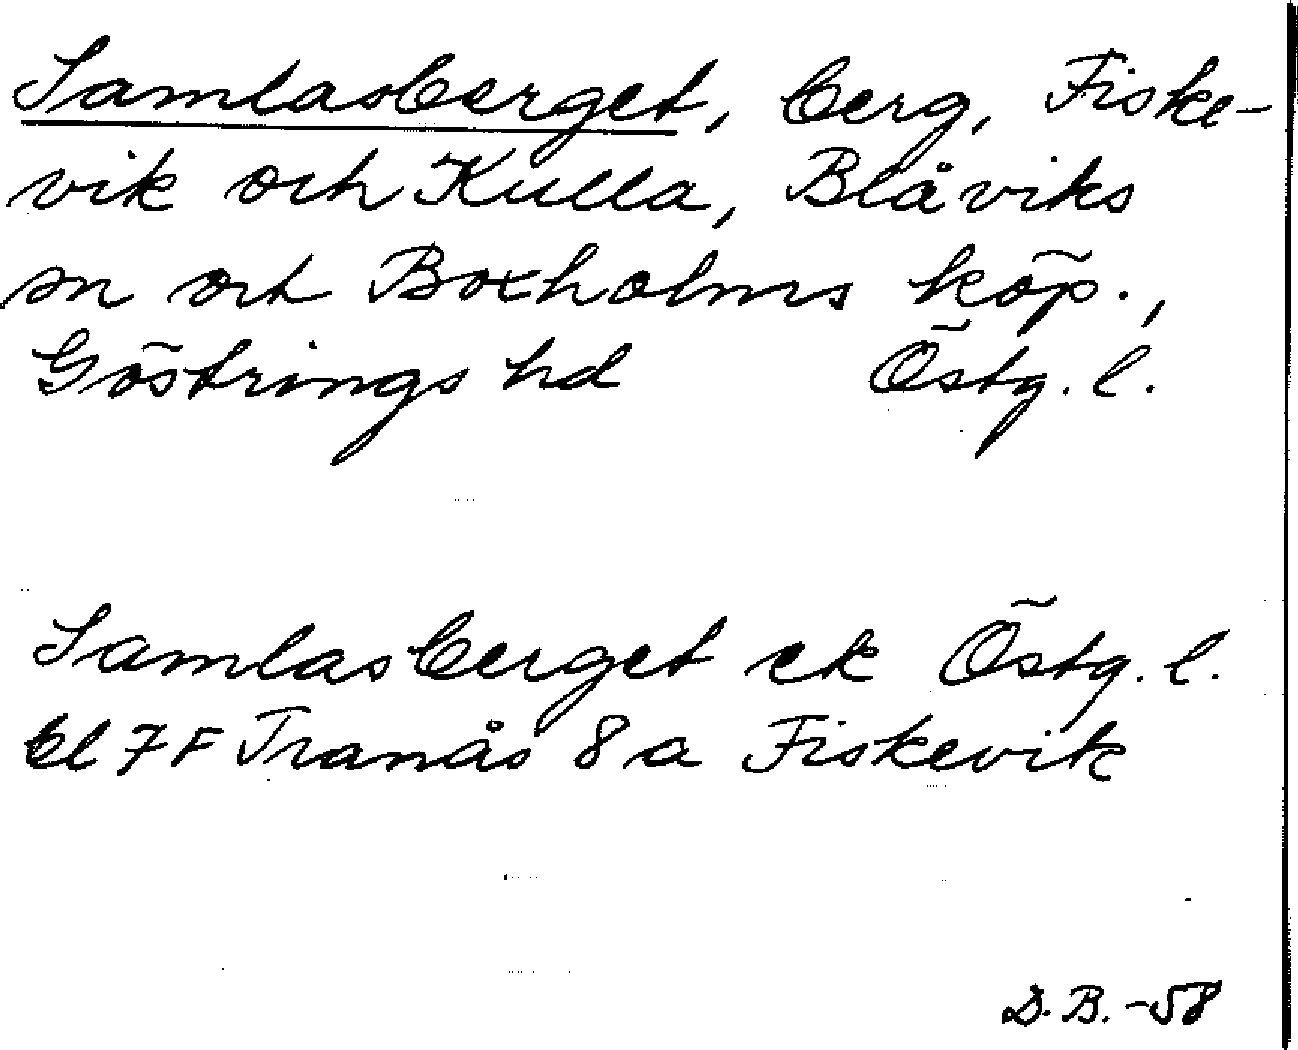 Samlasberget, berg, Fiske-
vik och Kulla, Blåviks
sn och Boxholms köp.,
Göstrings hd Östg. l.
Samlasberget ek Östg. l.
bl 7F Tranås 8a Fiskevik
D.B. -58